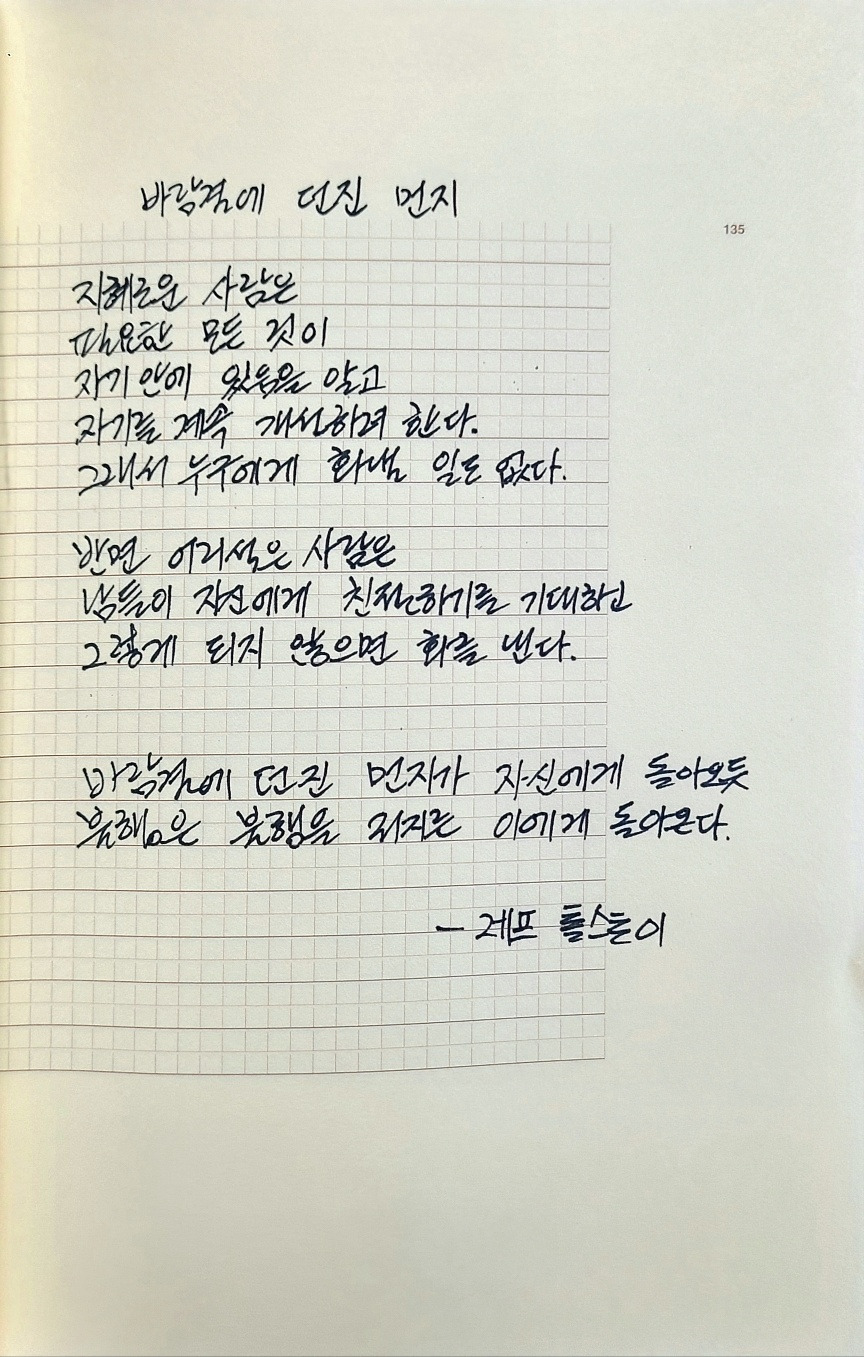 바람결에 던진 먼지
135
지혜로운 사람은
필요한 모든 것이
자기 안에 있음을 알고
자기를 계속 개선하려 한다.
그래서 누구에게 화낼 일도 없다.
반면 어리석은 사람은
남들이 자신에게 친절하기를 기대하고
그렇게 되지 않으면 화를 낸다.
바람결에 던진 먼지가 자신에게 돌아오듯
불행은 불행을 저지른 이에게 돌아온다.
- 레프 톨스토이